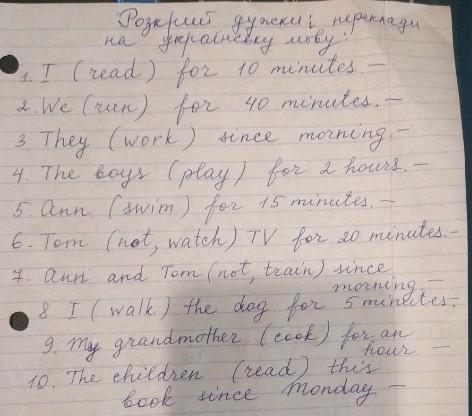 Розкрий дужки і переклади
на українську мову:
1. I (read) for 10 minutes. —
2. We (run) for 40 minutes. —
3. They (work) since morning. —
4. The boys (play) for 2 hours. —
5. Ann (swim) for 15 minutes. —
6. Tom (not, watch) TV for 20 minutes. —
7. Ann and Tom (not, train) since
morning. —
8 I (walk) the dog for 5 minutes. —
9. My grandmother (cook) for an
hour —
10. The children (read) this
book since Monday —